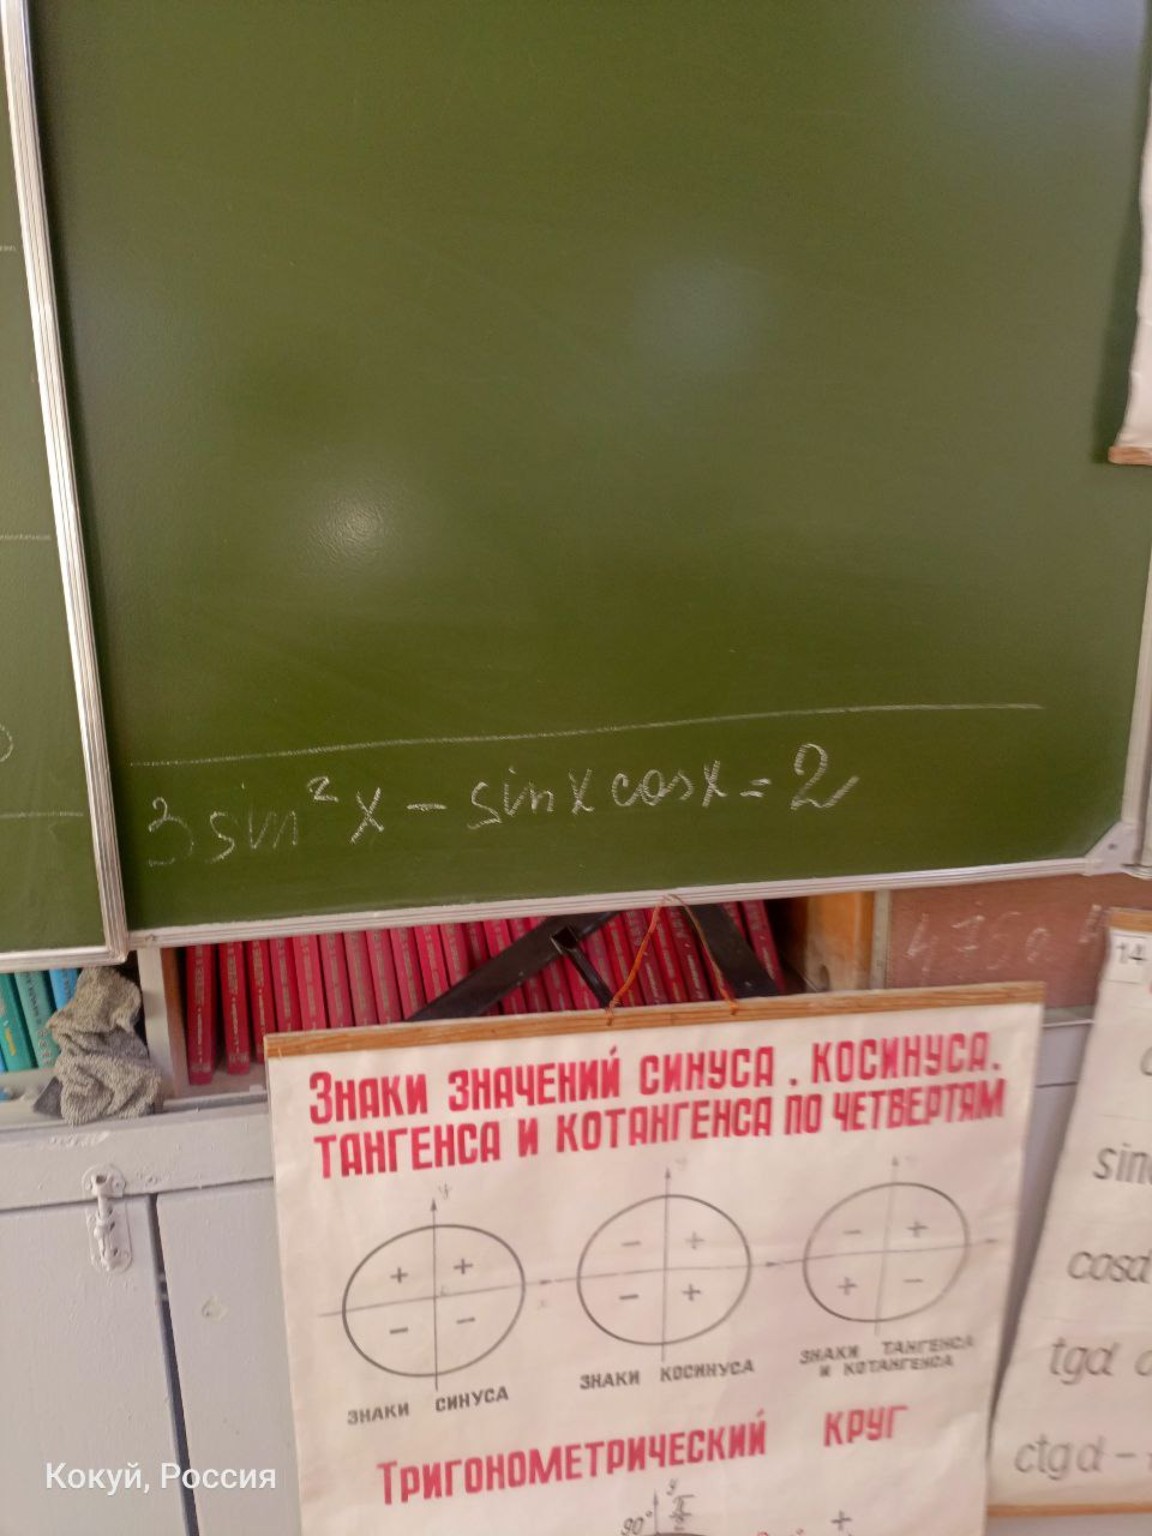 3 sin²x - sinx cosx = 2
ЗНАКИ ЗНАЧЕНИЙ СИНУСА. КОСИНУСА.
ТАНГЕНСА И КОТАНГЕНСА ПО ЧЕТВЕРТЯМ
ЗНАКИ СИНУСА
ЗНАКИ КОСИНУСА
ЗНАКИ ТАНГЕНСА
И КОТАНГЕНСА
ТРИГОНОМЕТРИЧЕСКИЙ КРУГ
90°
14
cosα
tgα
ctgα -
Кокуй, Россия